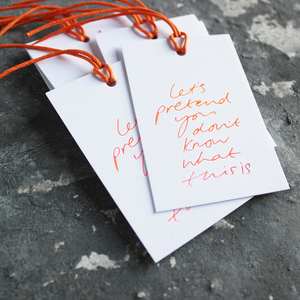 let's
pretend
you
don't
know
what
this is
le
pre